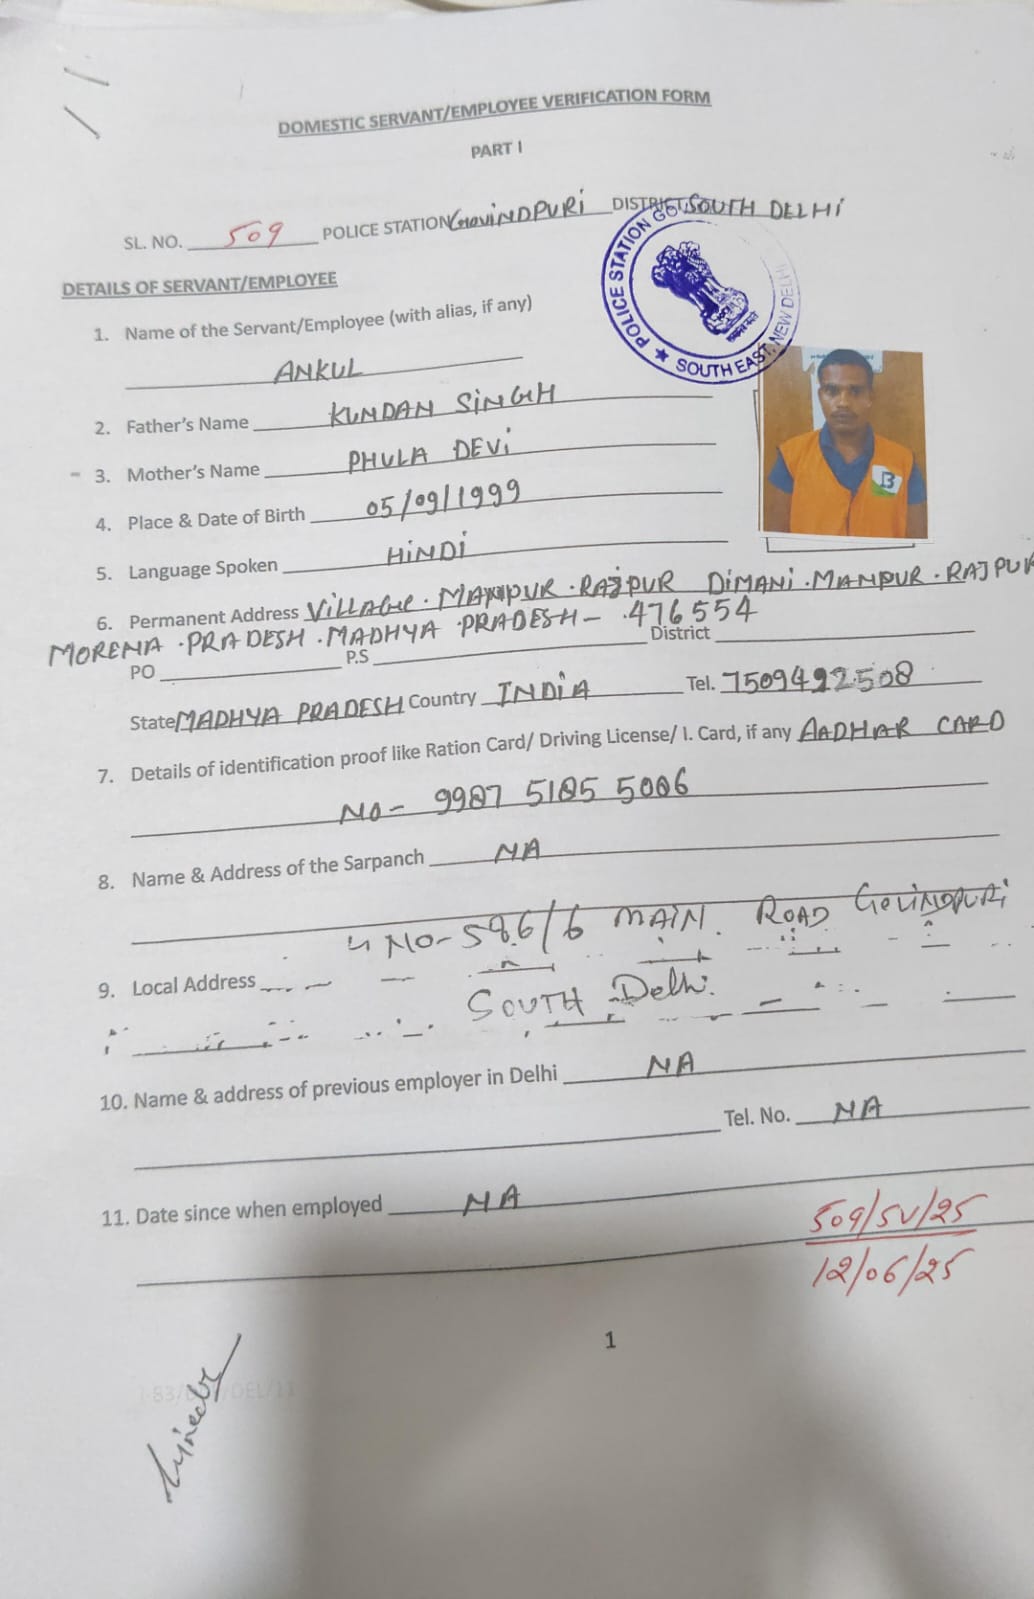 DOMESTIC SERVANT/EMPLOYEE VERIFICATION FORM
PART I
SL. NO. 509 POLICE STATION GOVINDPURI DISTRICT SOUTH DELHI
POLICE STATION GO
SOUTH EAST, NEW DELHI
DETAILS OF SERVANT/EMPLOYEE
1. Name of the Servant/Employee (with alias, if any)
ANKUL
2. Father's Name KUNDAN SINGH
3. Mother's Name PHULA DEVI
4. Place & Date of Birth 05/09/1999
5. Language Spoken HINDI
6. Permanent Address VILLAGE. MANPUR. RAJPUR DIMANI. MANPUR. RAJPUR
MORENA. PRADESH. MADHYA. PRADESH - .476554
PO P.S District
State MADHYA PRADESH Country INDIA Tel. 7509492508
7. Details of identification proof like Ration Card/ Driving License/ I. Card, if any AADHAR CARD
NO- 9987 5185 5006
8. Name & Address of the Sarpanch NA
NO- 586/6 MAIN. ROAD GOVINDPURI
9. Local Address
SOUTH Delhi.
10. Name & address of previous employer in Delhi NA
Tel. No. NA
11. Date since when employed NA
509/SV/25
12/06/25
1